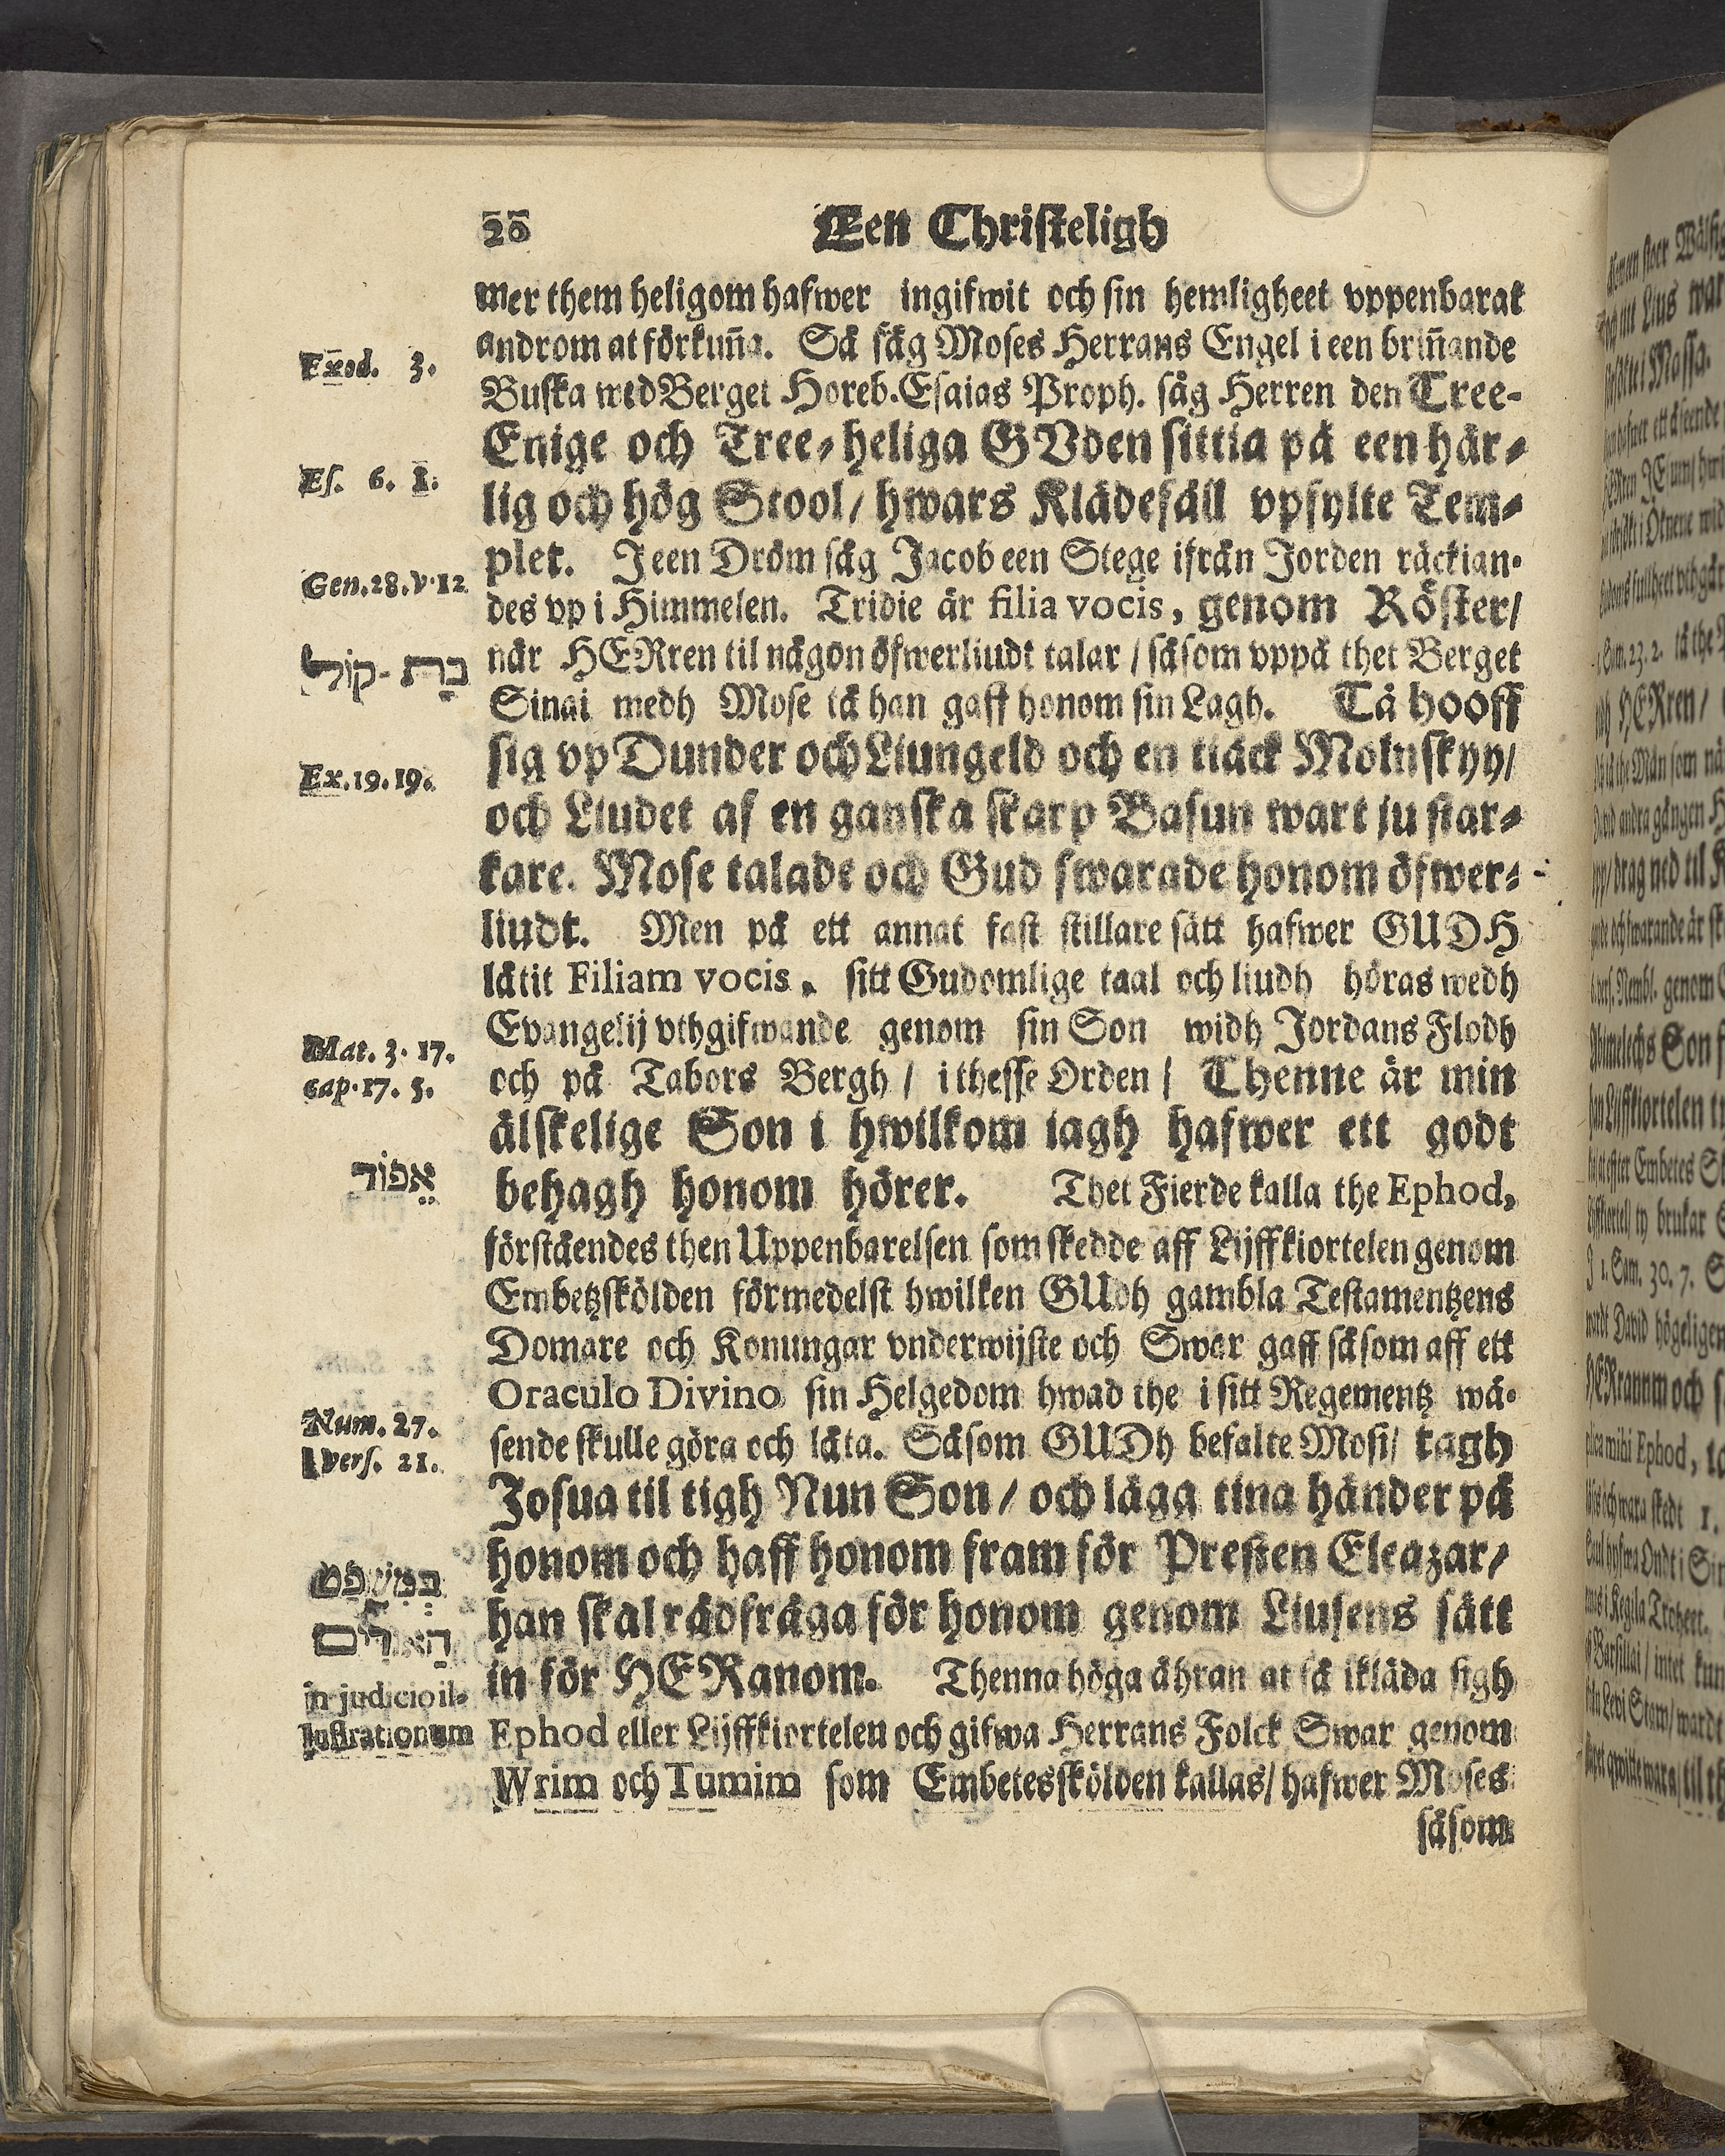 20 Een Christeligh
mer them heligom hafwer ingifwit och sin hemligheet vppenbarat
androm at förkuña. Så såg Moses Herrans Engel i een briñande
Exod. 3.
Buska wed Berget Horeb. Esaias Proph. såg Herren den Tree-
Enige och Tree-heliga GVden sittia på een här-
Es. 6. 1.
lig och hög Stool/ hwars Klädefåll vpfylte Tem-
plet. J een Dröm såg Jacob een Stege ifrån Jorden räckian-
Gen. 28. v. 12
des vp i Himmelen. Tridie är filia vocis, genom Röster/
når HERren til någon öfwerliudt talar / såsom vppå thet Berget
בַת -קוֹל
Sinai medh Mose tå han gaff honom sin Lagh. Tå hooff
sig vp Dunder och Liungeld och en tiäck Molnskyy/
Ex. 19. 19.
och Liudet af en ganska skarp Basun wart ju star-
kare. Mose talade och Gud swarade honom öfwer-
liudt. Men på ett annat fast stillare sätt hafwer GUDH
låtit Filiam vocis, sitt Gudomlige taal och liudh höras wedh
Evangelij vthgifwande genom sin Son widh Jordans Flodh
Mat. 3. 17.
och på Tabors Bergh / i thesse Orden / Thenne är min
cap. 17. 5.
älskelige Son i hwilkom iagh hafwer ett godt
behagh honom hörer. Thet Fierde kalla the Ephod,
אֵפוֹד
förståendes then Uppenbarelsen som skedde aff Lijffkiortelen genom
Embetzskölden förmedelst hwilken GUdh gambla Testamentzens
Domare och Konungar vnderwijste och Swar gaff såsom aff ett
Oraculo Divino sin Helgedom hwad the i sitt Regementz wä-
Num. 27.
sende skulle göra och låta. Såsom GUDh befalte Mosi/ tagh
vers. 21.
Josua til tigh Nun Son / och lägg tina händer på
honom och haff honom fram för Presten Eleazar/
בְּמִשְׁפַּט
han skal rådfråga för honom genom Liusens sätt
הָאוּרִים
in för HERanom. Thenna höga ähran at så ikläda sigh
in judicio il-
Ephod eller Lijffkiortelen och gifwa Herrans Folck Swar genom
lustrationum
Wrim och Tumim som Embetesskölden kallas/ hafwer Moses
såsom